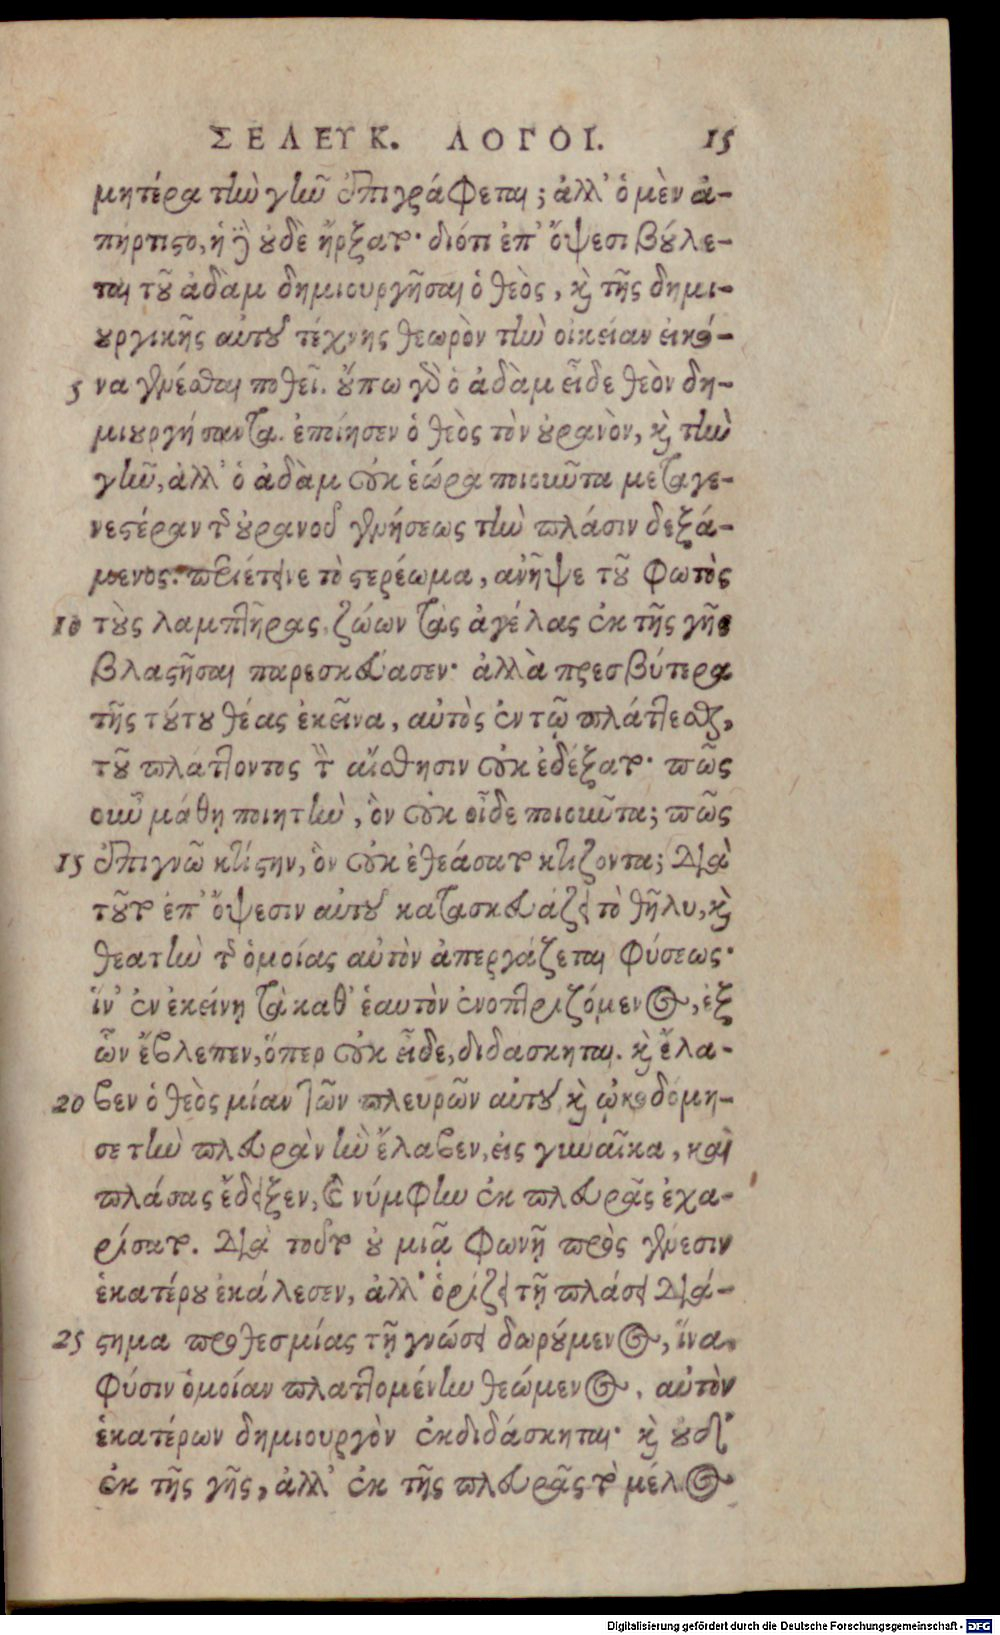 ΣΕΛΕΥΚ. ΛΟΓΟΙ. 15
μητέρα τὴν γῆν ἐπιγράφεται; ἀλλ' ὁ μὲν ἀ-
πήρτιστο, ἡ δὲ οὐδὲ ἤρξατο· διότι ἐπ' ὄψεσι βούλε-
ται τοῦ ἀδὰμ δημιουργῆσαι ὁ θεὸς, καὶ τῆς δημι-
ουργικῆς αὐτοῦ τέχνης θεωρὸν τὴν οἰκείαν εἰκό-
5 να γενέσθαι ποθεῖ. οὔπω γὰρ ὁ ἀδὰμ εἶδε θεὸν δη-
μιουργήσαντα. ἐποίησεν ὁ θεὸς τὸν οὐρανὸν, καὶ τὴν
γῆν, ἀλλ' ὁ ἀδὰμ οὐκ ἑώρα ποιοῦντα μεταγε-
νεστέραν τῆς οὐρανοῦ γενήσεως τὴν πλάσιν δεξά-
μενος. περιέτεινε τὸ στερέωμα, ἀνῆψε τοῦ φωτὸς
10 τοὺς λαμπτῆρας, ζώων τὰς ἀγέλας ἐκ τῆς γῆς
βλαστῆσαι παρεσκεύασεν· ἀλλὰ πρεσβύτερα
τῆς τούτου θέας ἐκεῖνα, αὐτὸς ἐν τῷ πλάττεσθαι,
τοῦ πλάττοντος τὴν αἴσθησιν οὐκ ἐδέξατο· πῶς
οὖν μάθῃ ποιητὴν, ὃν οὐκ οἶδε ποιοῦντα; πῶς
15 ἐπιγνῶ κτίστην, ὃν οὐκ ἐθεάσατο κτίζοντα; διὰ
τοῦτο ἐπ' ὄψεσιν αὐτοῦ κατασκευάζει τὸ θῆλυ, καὶ
θεατὴν τῆς ὁμοίας αὐτὸν ἀπεργάζεται φύσεως·
ἵν' ἐν ἐκείνῃ τὰ καθ' ἑαυτὸν ἐνοπτριζόμενος, ἐξ
ὧν ἔβλεπεν, ὅπερ οὐκ εἶδε, διδάσκηται. καὶ ἔλα-
20 βεν ὁ θεὸς μίαν τῶν πλευρῶν αὐτοῦ καὶ ᾠκοδόμη-
σε τὴν πλευρὰν ἣν ἔλαβεν, εἰς γυναῖκα, καὶ
πλάσας ἔδειξεν, καὶ νύμφην ἐκ πλευρᾶς ἐχα-
ρίσατο. διὰ τοῦτο οὐ μιᾷ φωνῇ πρὸς γένεσιν
ἑκατέρου ἐκάλεσεν, ἀλλ' ὁρίζει τῇ πλάσει διά-
25 στημα προθεσμίας τῇ γνώσει δωρούμενος, ἵνα
φύσιν ὁμοίαν πλαττομένην θεώμενος, αὐτὸν
ἑκατέρων δημιουργὸν ἐκδιδάσκηται· καὶ οὐδ'
ἐκ τῆς γῆς, ἀλλ' ἐκ τῆς πλευρᾶς τὸ μέλος
Digitalisierung gefördert durch die Deutsche Forschungsgemeinschaft - DFG